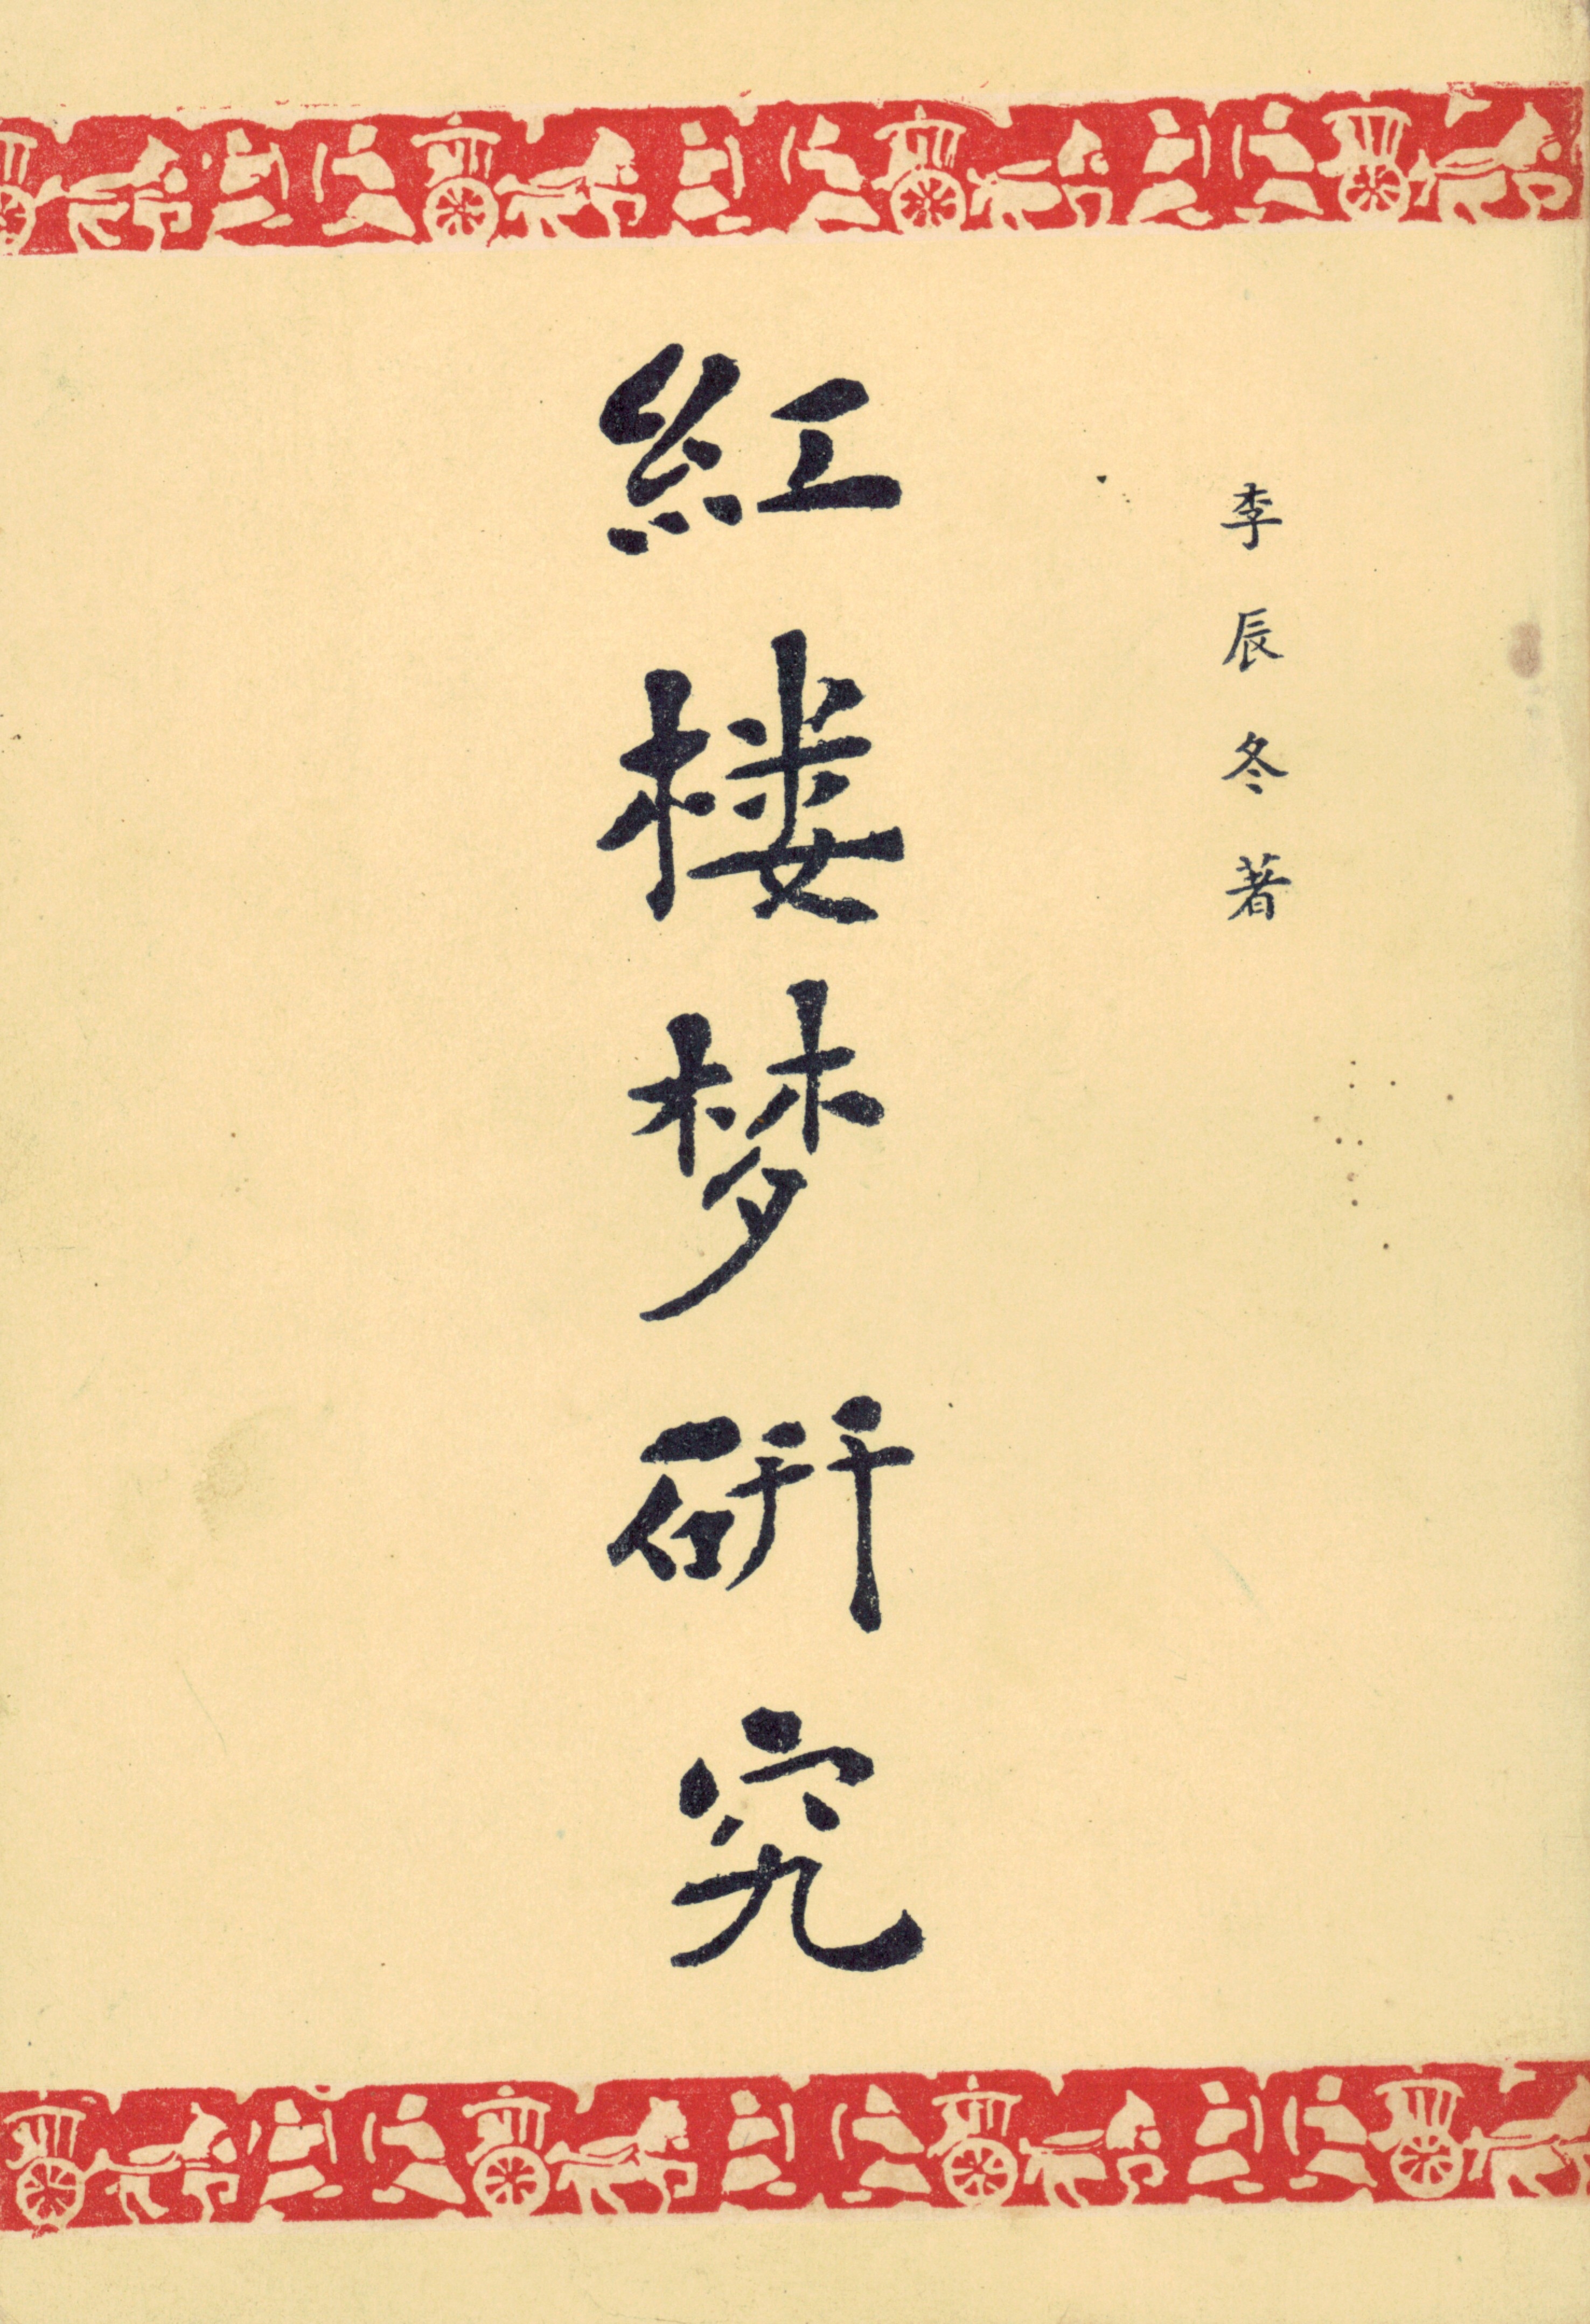 李辰冬著
紅楼梦研究